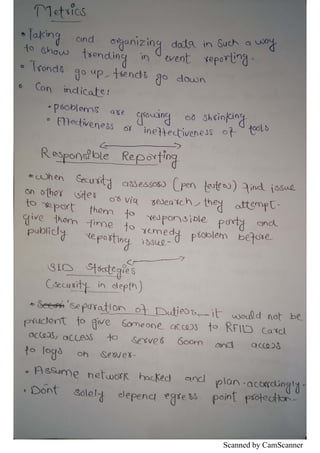 Metrics
• Taking and organizing data in such a way
to show trending in event reporting.
• Trends go up, trends go down
• Can indicate:
• problems are growing or shrinking
• Effectiveness or ineffectiveness of tools
Responsible Reporting
• When security assessors (pen testers) find issue
on other sites or via research, they attempt
to report them to responsible party and
give them time to remedy problem before
publicly reporting issue.
SID Strategies
(Security in depth)
• Separation of Duties, it would not be
prudent to give someone access to RFID card
access, access to server room and access
to logs on server.
• Assume network hacked and plan accordingly.
• Dont solely depend egress point protection.
Scanned by CamScanner